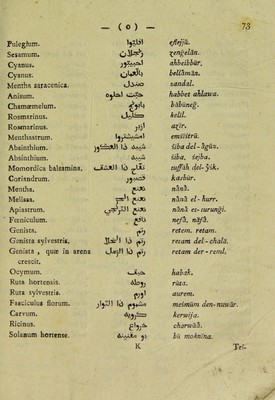 — ( 0 ) — 73
Pulegium. افليّوا eflejjü.
Sesamum. زنجلان zengelân.
Cyanus. احبيبور ahbeibbür.
Cyanus. بالعمان bellâmân.
Mentha saracenica. صندل sandal.
Anisum. حبّت احلاوه habbet ahlawa.
Chamæmelum. بابونج bâbûneg.
Rosmarinus. كليل kelil.
Rosmarinus. ازير azir.
Menthastrum. emiſiſtrü.
Absinthium. شيبه ذا العكوز ſiba del-âgüz.
Absinthium. شيبه ſiba, ſejba.
Momordica balsamina. تفّاح ذا العشق tuffâh del-ÿik.
Coriandrum. قصبور kasbûr.
Mentha. نعنع nânâ.
Melissa. نعنع الحر nânâ el-hurr.
Apiastrum. نعنع الترنجي nânâ es-turungi.
Fœniculum. نافع nefâ, nâfâ.
Genista. رتم retem. retam.
Genista sylvestris. رتم ذا الخلا retam del-chalâ.
Genista, quæ in arena رتم ذا الرمل retam der-reml.
crescit.
Ocymum. حبق habak.
Ruta hortensis. روطه rüta.
Ruta sylvestris. اورم aurem.
Fasciculus florum. مشموم ذا النوار meimûm den-nuwâr.
Carvum. كرويّه kerwija.
Ricinus. خروع charwââ.
Solanum hortense. بو مقنينه bü moknîna.
K Tri-